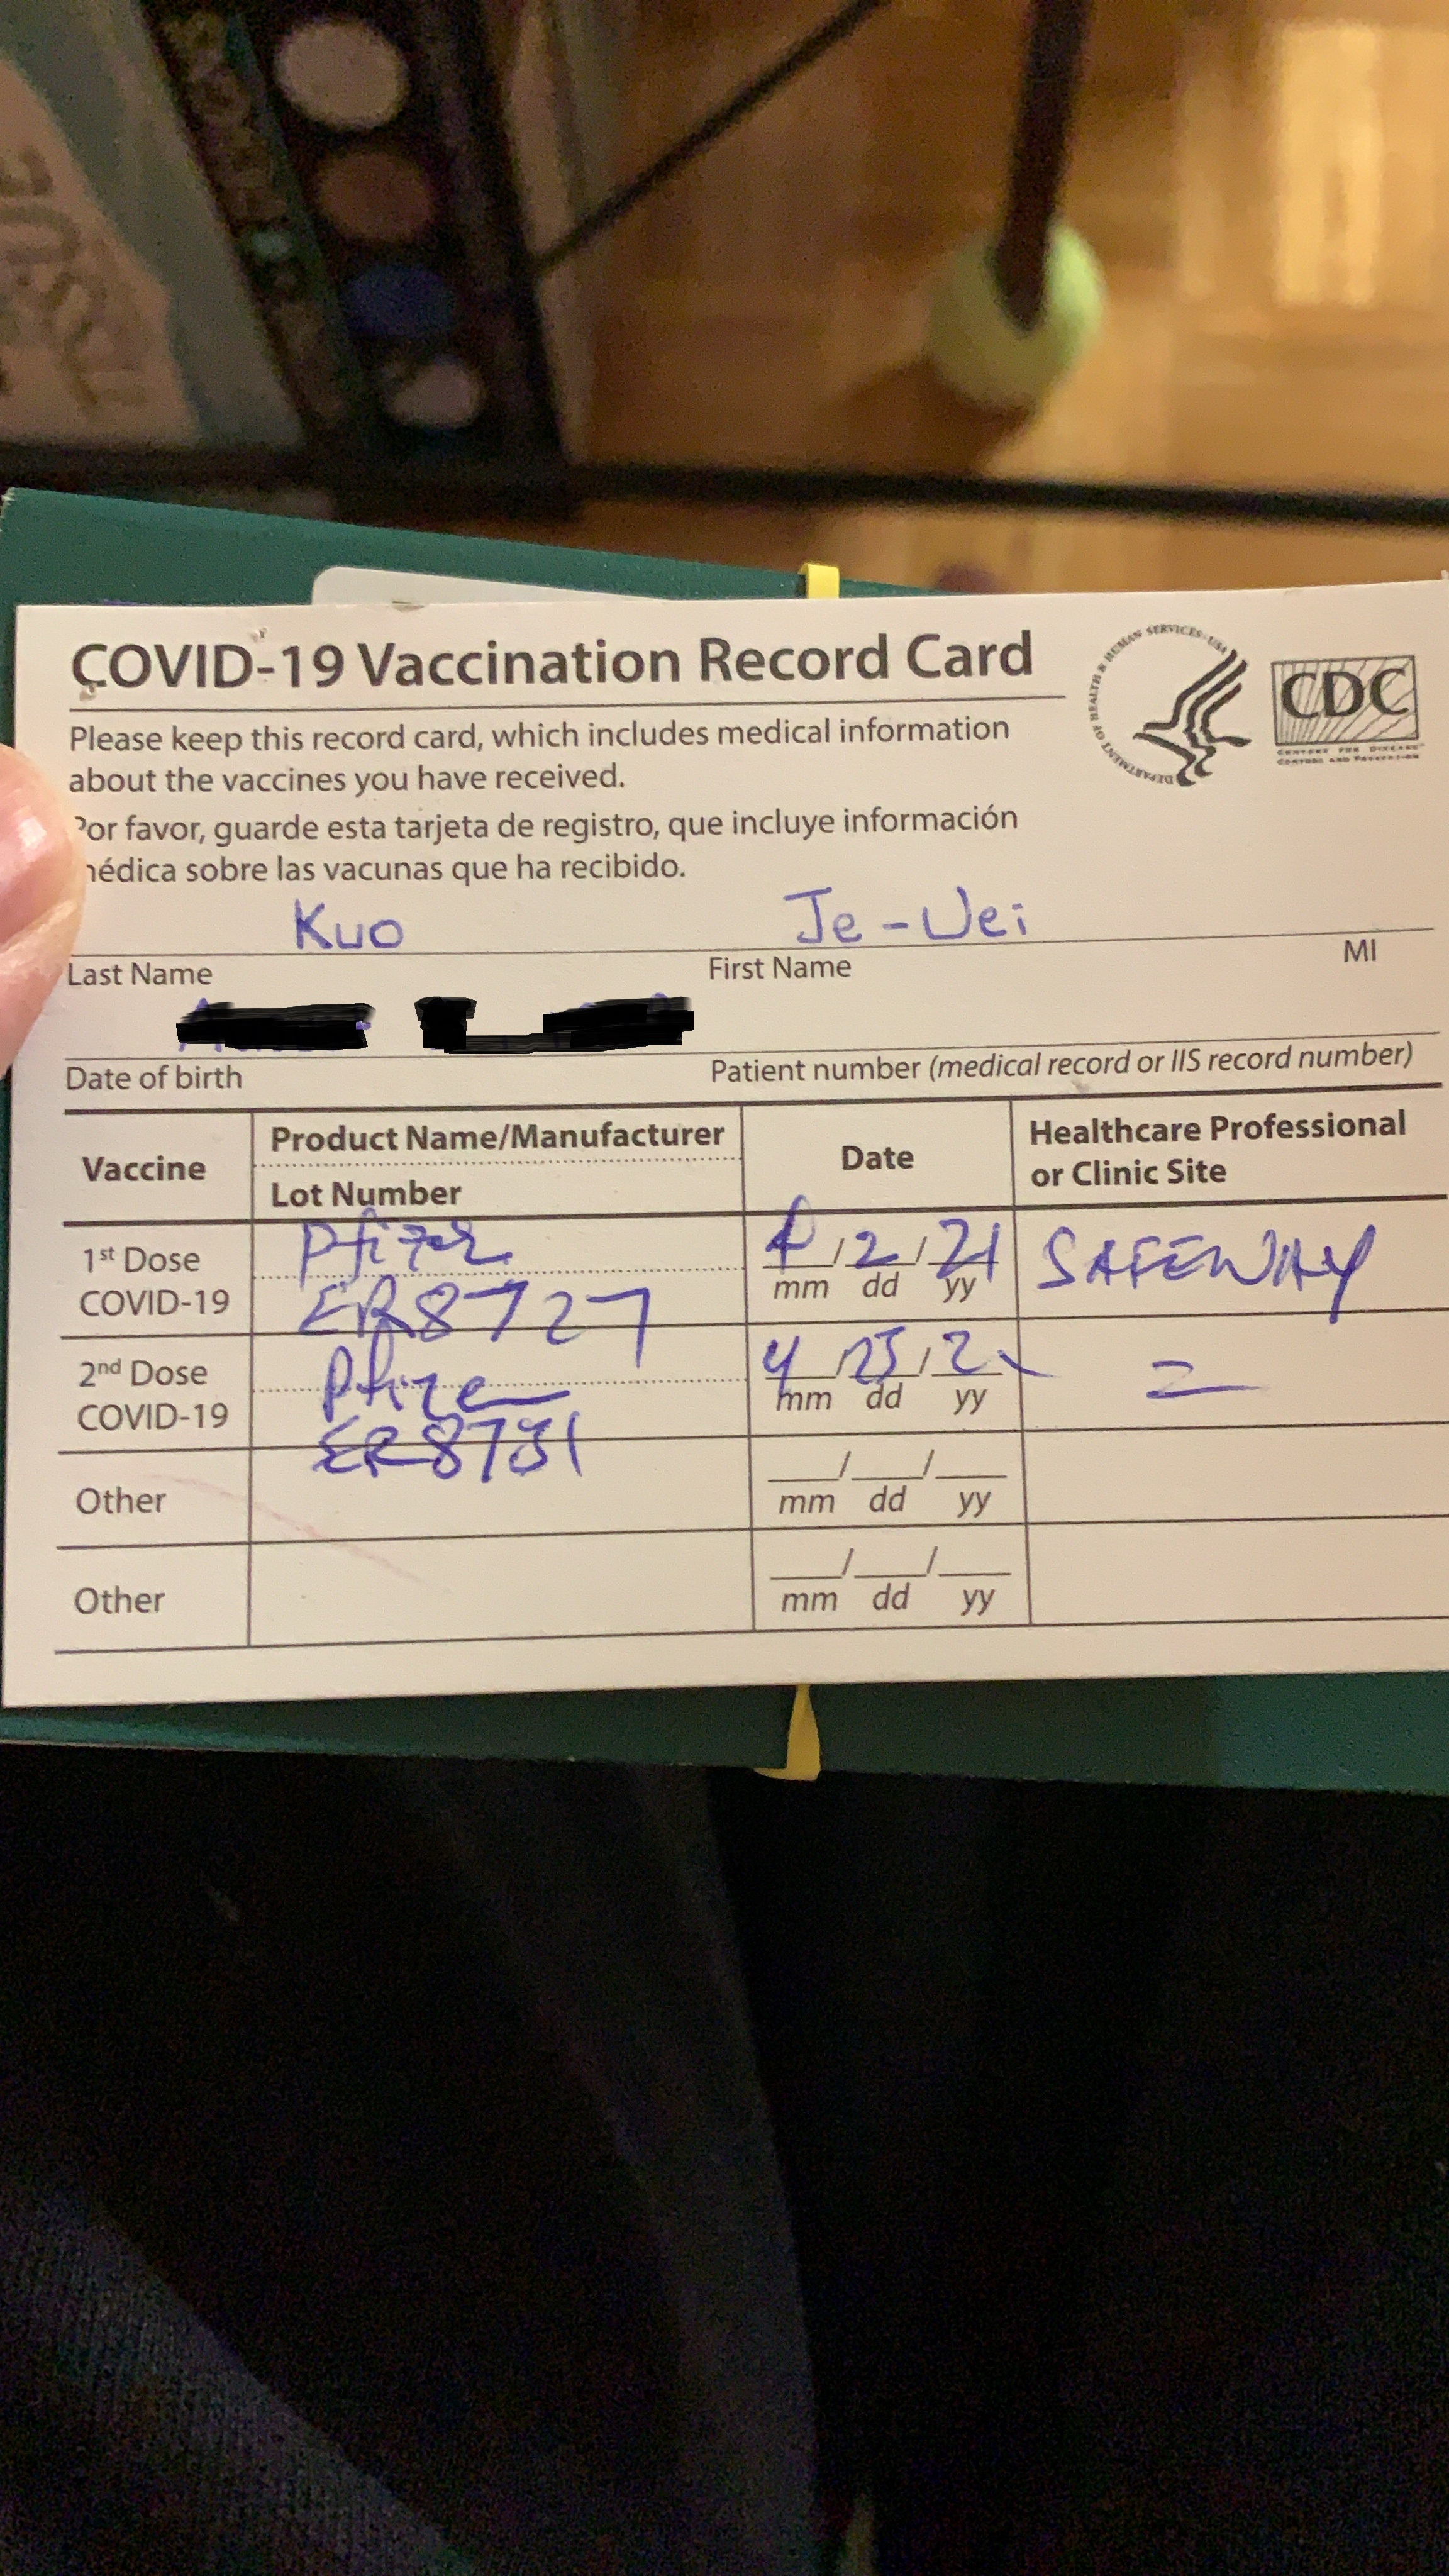 COVID-19 Vaccination Record Card
DEPARTMENT OF HEALTH & HUMAN SERVICES·USA
CDC
CENTERS FOR DISEASE™
CONTROL AND PREVENTION
Please keep this record card, which includes medical information
about the vaccines you have received.
Por favor, guarde esta tarjeta de registro, que incluye información
médica sobre las vacunas que ha recibido.
Kuo Je-Wei
Last Name First Name MI
Date of birth Patient number (medical record or IIS record number)
Vaccine Product Name/Manufacturer Date Healthcare Professional
Lot Number or Clinic Site
1st Dose Pfizer 4/2/21 SAFEWAY
COVID-19 ER8727 mm dd yy
2nd Dose Pfizer 4/ /2 =
COVID-19 ER8731 mm dd yy
Other / /
mm dd yy
Other / /
mm dd yy